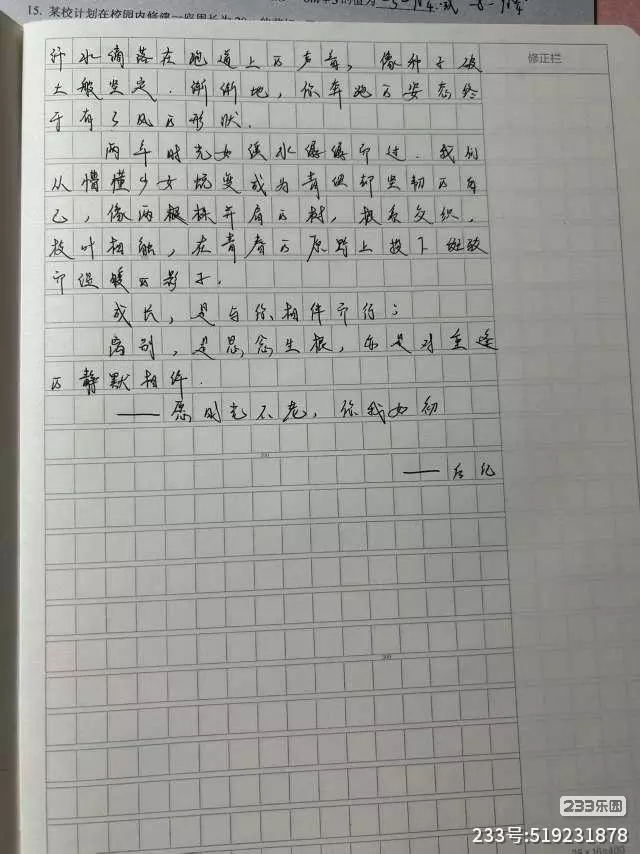 15. 某校计划在校园内修建一座周长为20
修正栏
汗水滴落在跑道上的声音，像种子破
土般坚定．渐渐地，你奔跑的姿态终
于有了风的形状．
两年时光如溪水缓缓而过．我们
从懵懂少女蜕变成为青涩却坚韧的自
己，像两棵并肩的树，根系交织，
枝叶相融，在青春的原野上投下斑驳
而温暖的影子．
成长，是与你相伴而行；
离别，是思念生根，亦是对重逢
的静默相伴．
——愿时光不老，你我如初
200
——后记
300
233乐园
233号:519231878